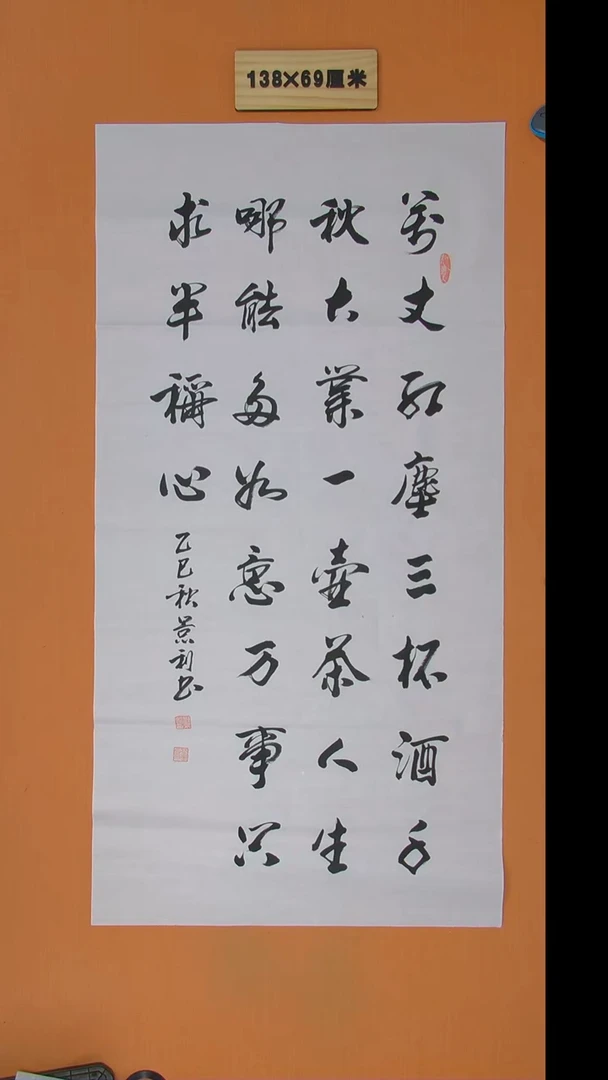 138×69厘米
萬丈紅塵三杯酒千
秋大業一壺茶人生
哪能多如意万事只
求半稱心
乙巳秋景利书